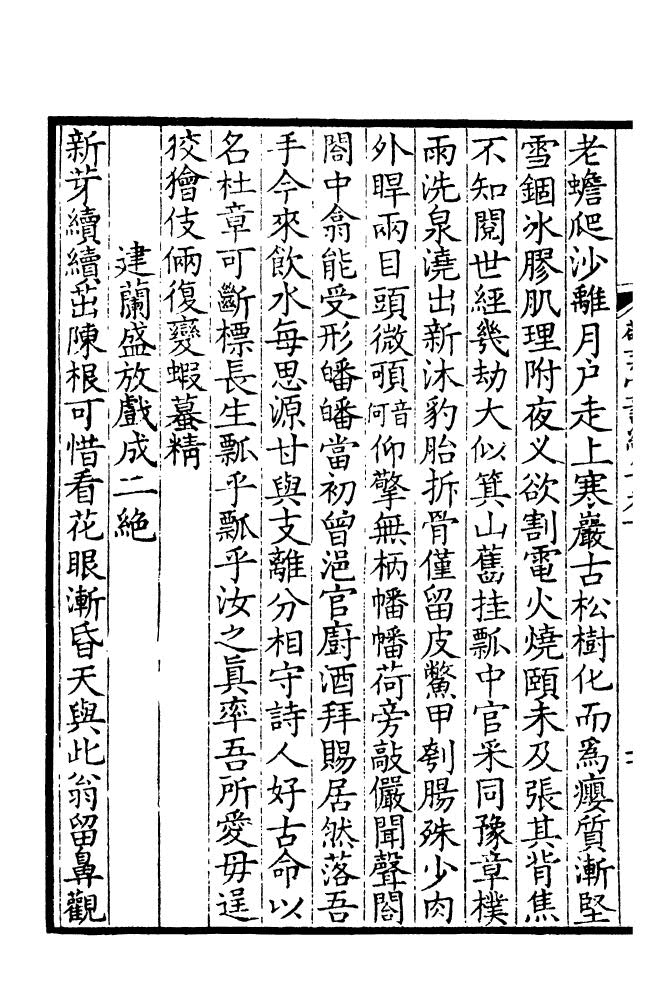 老蟾爬沙離月户走上寒巖古松樹化而爲癭質漸堅
雪錮冰膠肌理附夜义欲割電火燒頤未及張其背焦
不知閱世經幾劫大似箕山舊挂瓢中官采同豫章樸
雨洗泉澆出新沐豹胎拆骨僅留皮鱉甲刳腸殊少肉
外睅兩目頭微頊音何仰擎無柄幡幡荷旁敲儼聞聲閤
閤中翕能受形皤皤當初曾浥官廚酒拜賜居然落吾
手今來飲水每思源甘與支離分相守詩人好古命以
名杜章可斷標長生瓢乎瓢乎汝之眞率吾所愛毋逞
狡獪伎倆復變蝦蟇精
建蘭盛放戲成二絶
新芽續續茁陳根可惜看花眼漸昏天與此翁留鼻觀